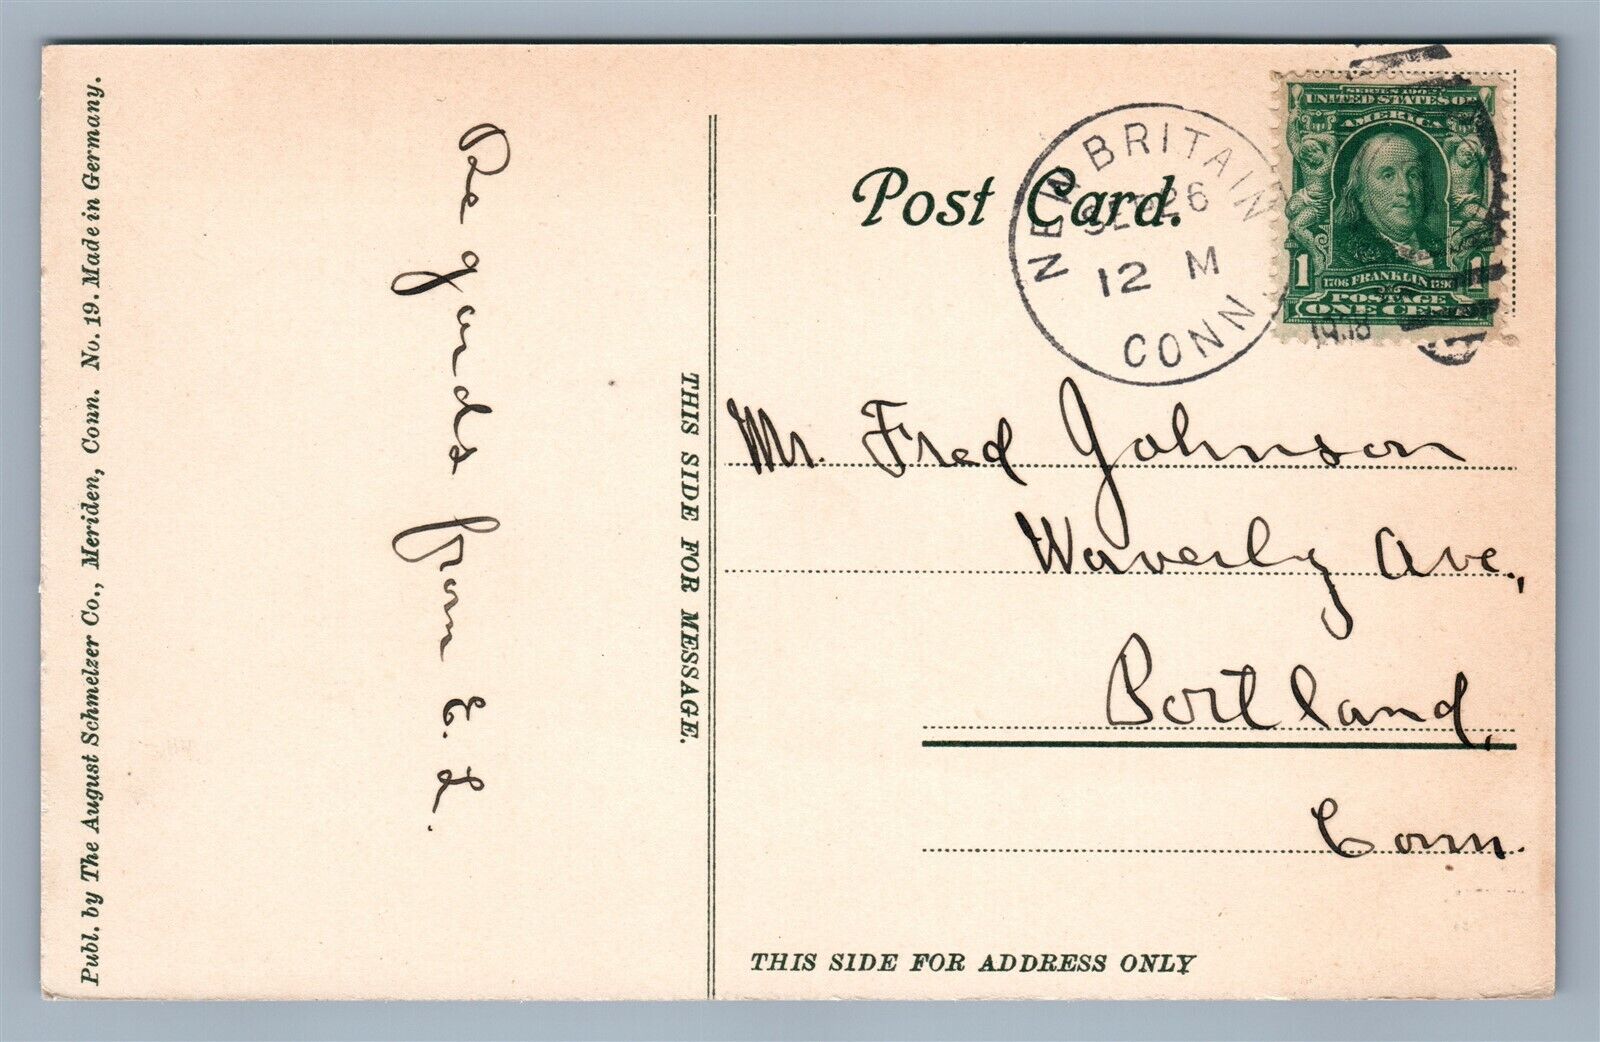 Publ. by The August Schmelzer Co., Meriden, Conn. No. 19. Made in Germany.
Regards from E. L.
THIS SIDE FOR MESSAGE.
Post Card.
NEW BRITAIN
SEP 26
12 M
CONN
SERIES 1902
UNITED STATES OF
AMERICA
1 1706 FRANKLIN 1790 1
POSTAGE
ONE CENT
Mr. Fred Johnson
Waverly Ave.,
Portland,
Conn.
THIS SIDE FOR ADDRESS ONLY